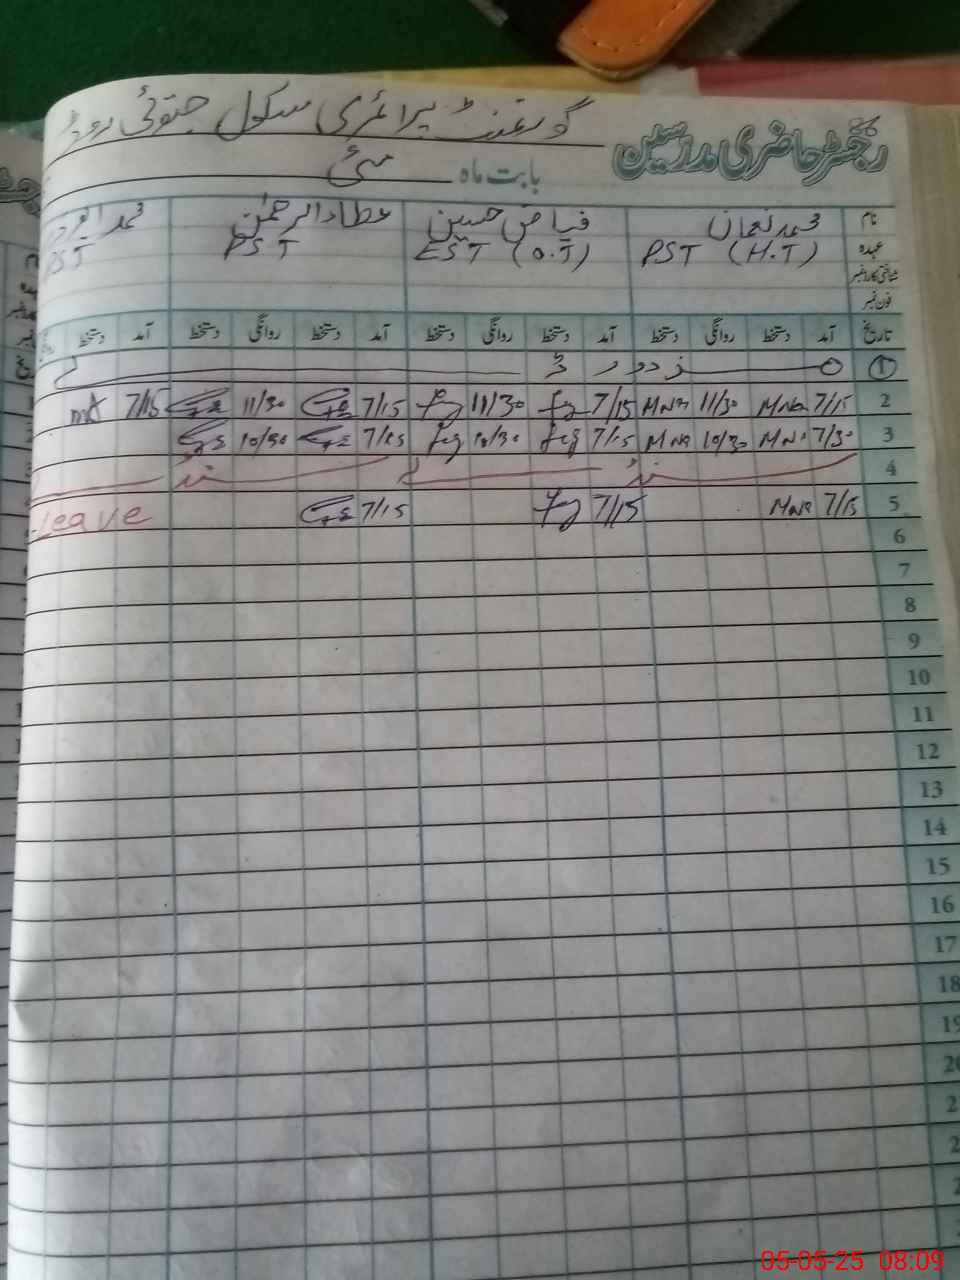 گورنمنٹ پرائمری سکول جتوئی روڈ
رجسٹر حاضری مدرسین
بابت ماہ مئی
نام محمد نعمان فیاض حسین عطاء الرحمٰن محمد
عہدہ PST (H.T) EST (O.T) PST PST
شناختی کارڈ نمبر
فون نمبر
تاریخ آمد دستخط روانگی دستخط آمد دستخط روانگی دستخط آمد دستخط روانگی دستخط آمد دستخط
1 مزدور ڈے
2 7/15 MNa 11/30 MNa 7/15 11/30 7/15 11/30 7/15 mA
3 7/30 MNa 10/30 MNa 7/15 10/30 7/15 10/30
4 سنڈے سنڈے
5 7/15 MNa 7/15 7/15 Leave
6
7
8
9
10
11
12
13
14
15
16
17
18
19
05-05-25 08:09